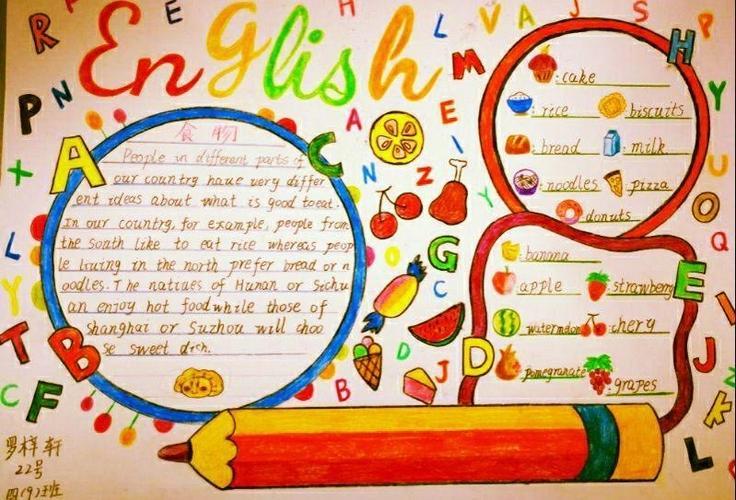 English
食物
People in different parts of
our country have very differ
ent ideas about what is good to eat.
In our country, for example, people from
the south like to eat rice whereas peop
le living in the north prefer bread or n
oodles. The natives of Hunan or Sichu
an enjoy hot food while those of
Shanghai or Suzhou will choo
se sweet dich.
cake
rice
biscuits
bread
milk
noodles
pizza
donuts
banana
apple
strawberry
watermelon
chery
pomegranate
grapes
A
C
B
D
E
G
H
M
R
P
N
X
L
Y
T
F
22号
四(9)班